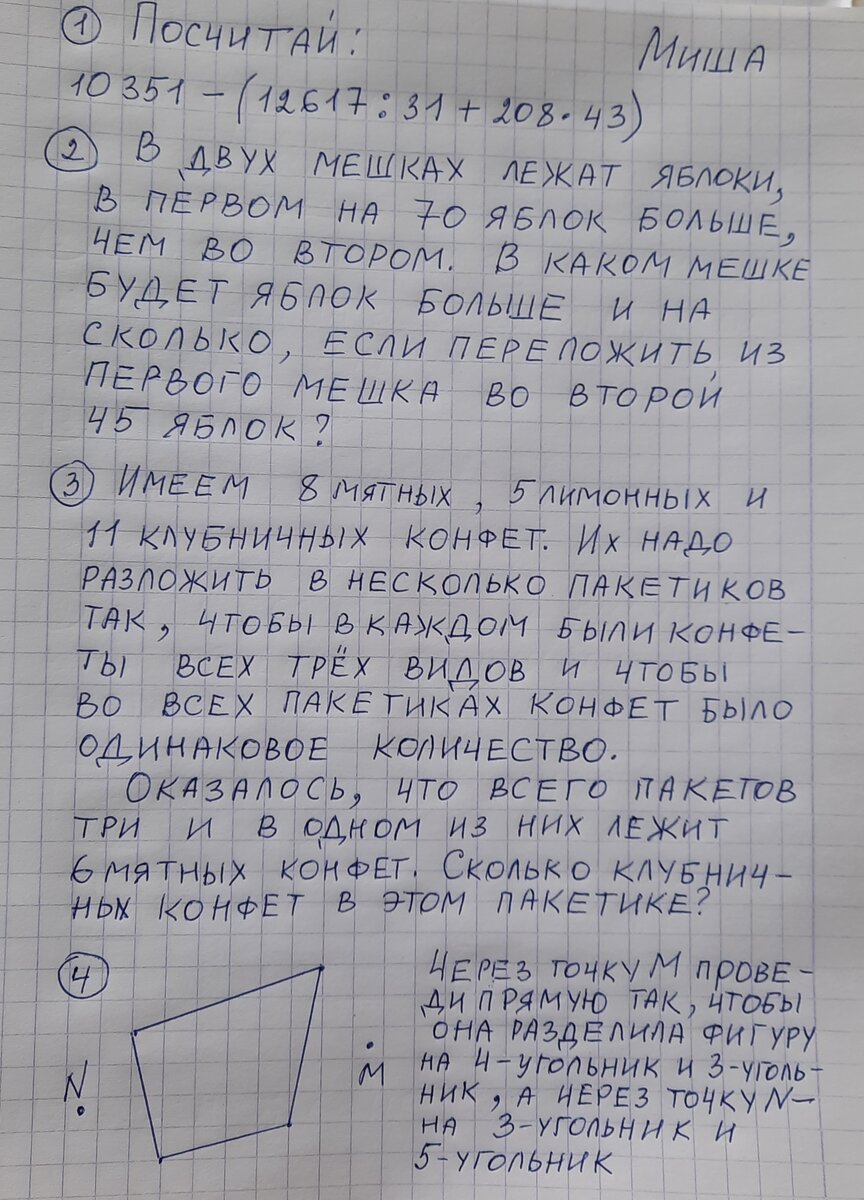 1 Посчитай: Миша
10 351 - (12617 : 31 + 208 · 43)
2 В двух мешках лежат яблоки,
в первом на 70 яблок больше,
чем во втором. В каком мешке
будет яблок больше и на
сколько, если переложить из
первого мешка во второй
45 яблок?
3 Имеем 8 мятных, 5 лимонных и
11 клубничных конфет. Их надо
разложить в несколько пакетиков
так, чтобы в каждом были конфе-
ты всех трёх видов и чтобы
во всех пакетиках конфет было
одинаковое количество.
Оказалось, что всего пакетов
три и в одном из них лежит
6 мятных конфет. Сколько клубнич-
ных конфет в этом пакетике?
4
N
M
Через точку M прове-
ди прямую так, чтобы
она разделила фигуру
на 4-угольник и 3-уголь-
ник, а через точку N-
на 3-угольник и
5-угольник